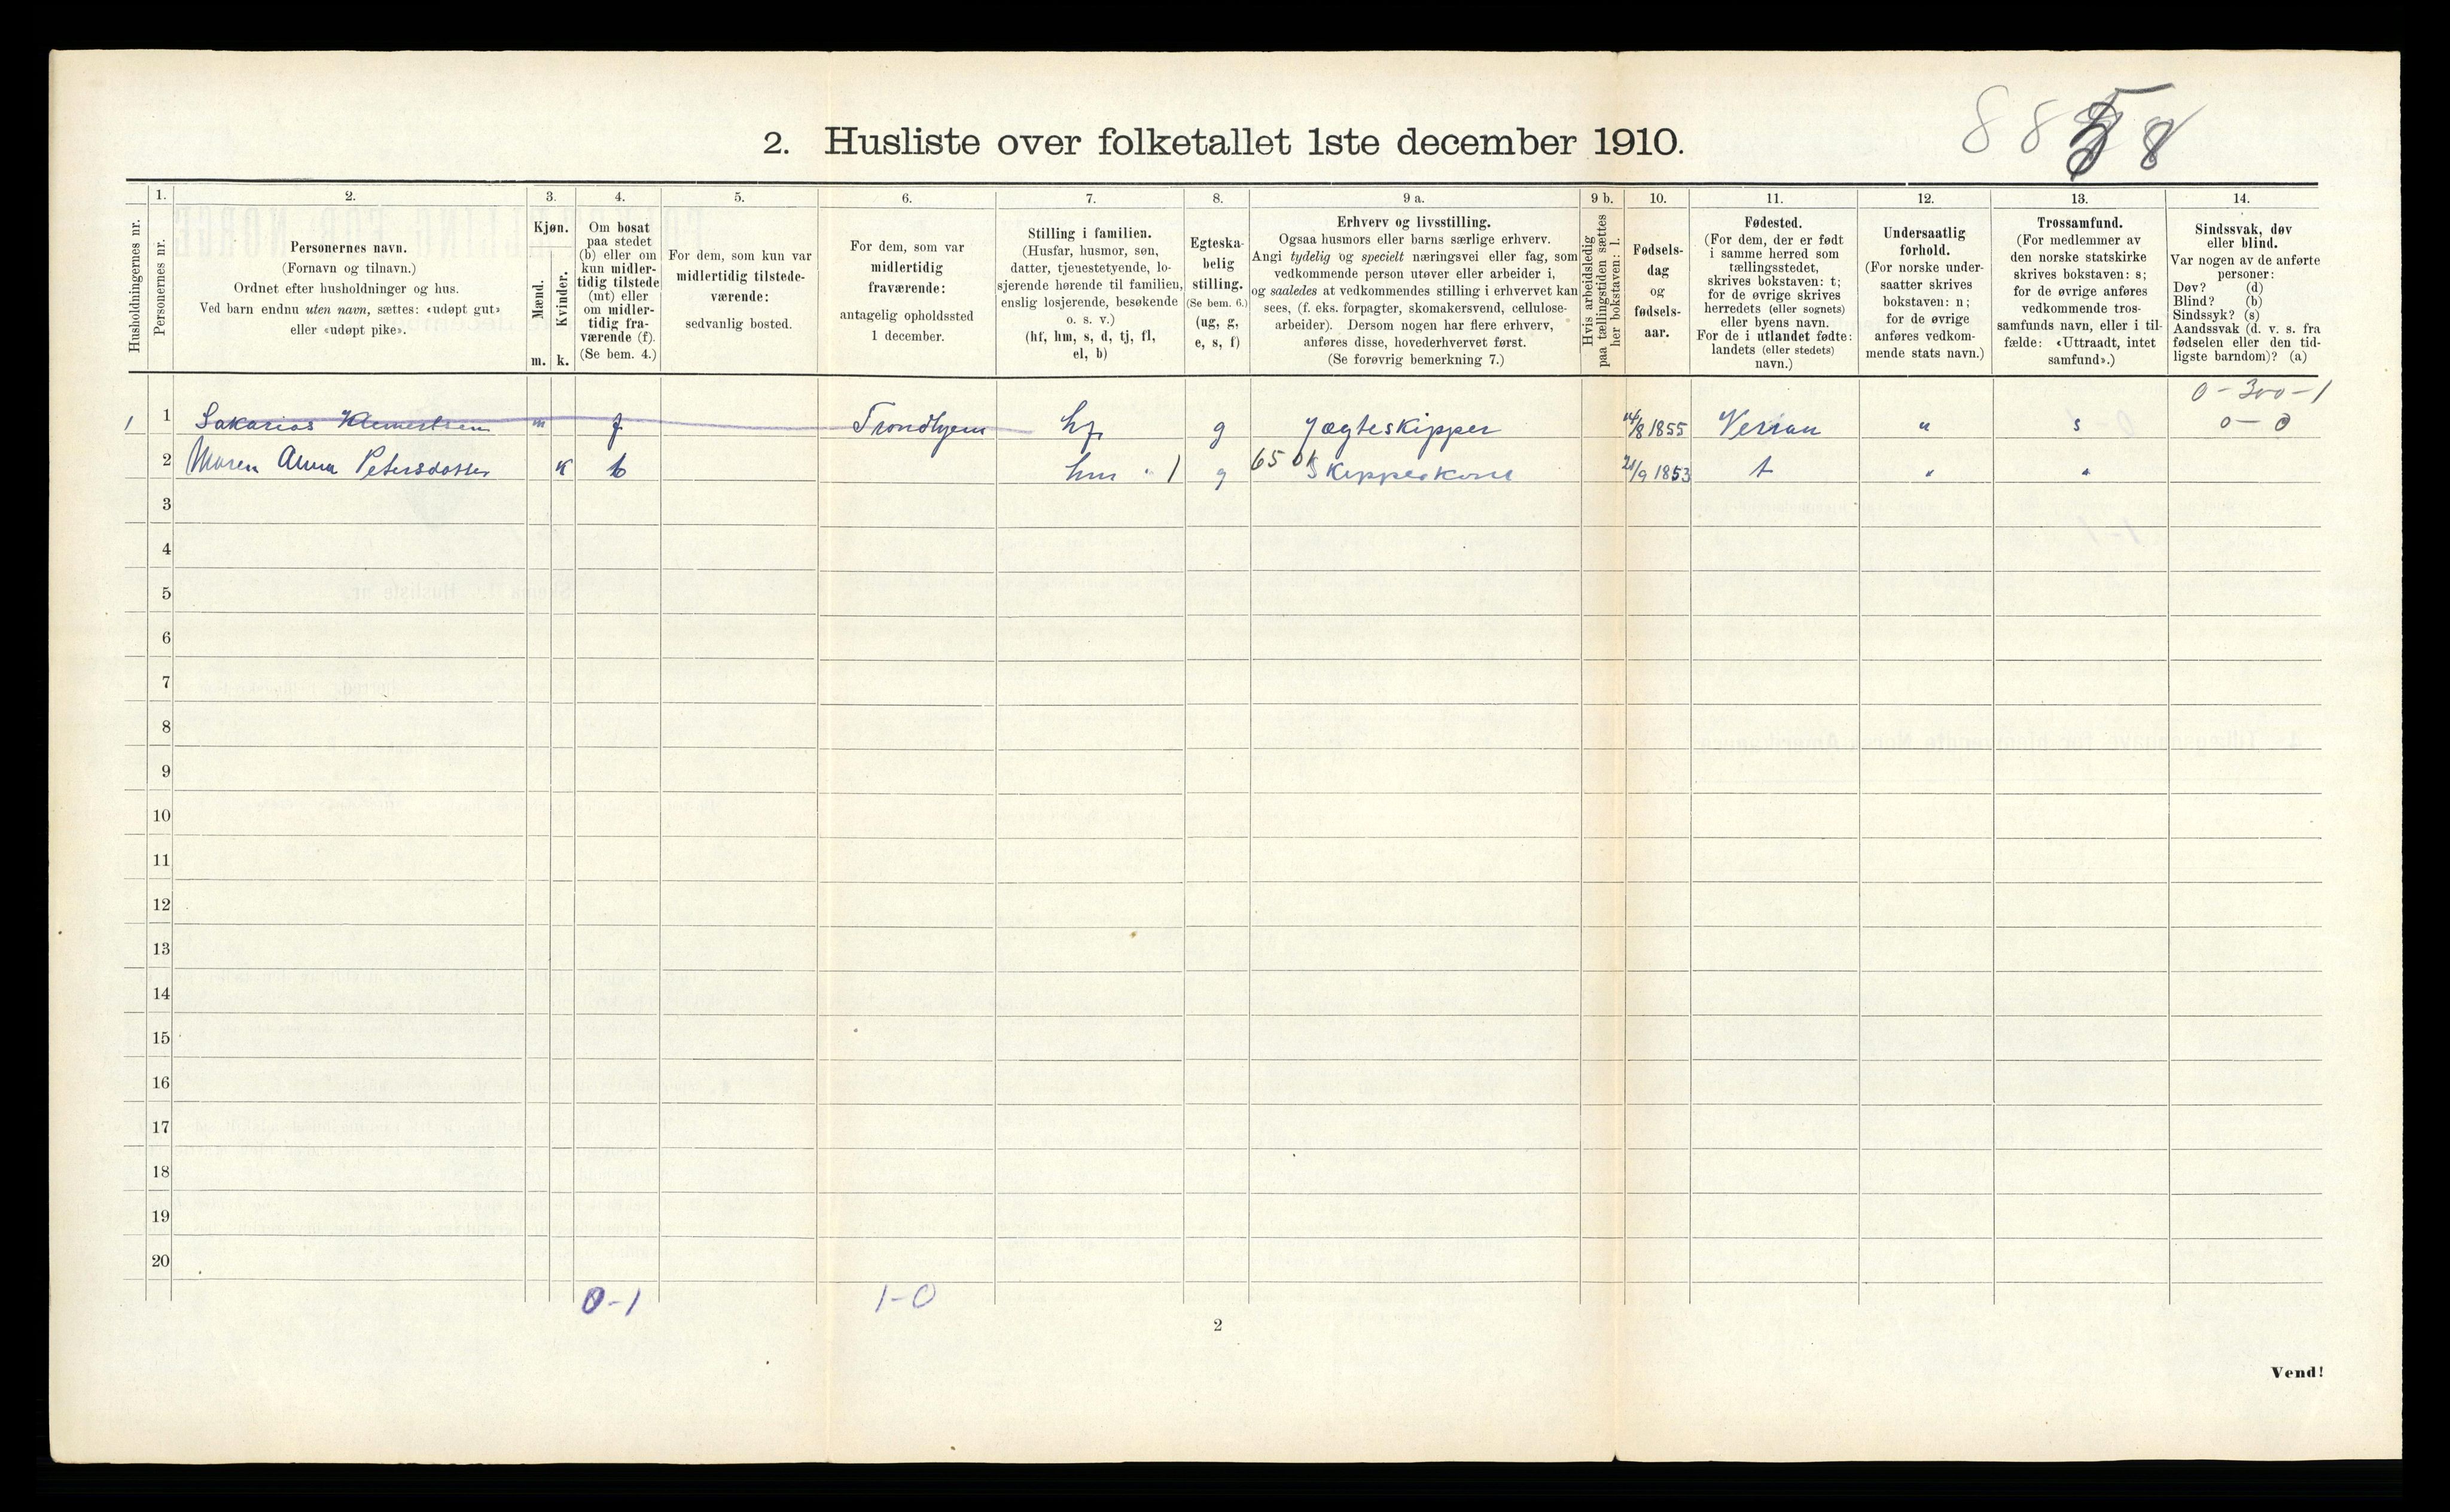 2. Husliste over folketallet 1ste december 1910.
88
Husholdningernes nr.
1.
Personernes nr.
2.
Personernes navn.
(Fornavn og tilnavn.)
Ordnet efter husholdninger og hus.
Ved barn endnu uten navn, sættes: «udøpt gut»
eller «udøpt pike».
3.
Kjøn.
Mænd.
Kvinder.
m. k.
4.
Om bosat
paa stedet
(b) eller om
kun midler-
tidig tilstede
(mt) eller
om midler-
tidig fra-
værende (f).
(Se bem. 4.)
5.
For dem, som kun var
midlertidig tilstede-
værende:
sedvanlig bosted.
6.
For dem, som var
midlertidig
fraværende:
antagelig opholdssted
1 december.
7.
Stilling i familien.
(Husfar, husmor, søn,
datter, tjenestetyende, lo-
sjerende hørende til familien,
enslig losjerende, besøkende
o. s. v.)
(hf, hm, s, d, tj, fl,
el, b)
8.
Egteska-
belig
stilling.
(Se bem. 6.)
(ug, g,
e, s, f)
9 a.
Erhverv og livsstilling.
Ogsaa husmors eller barns særlige erhverv.
Angi tydelig og specielt næringsvei eller fag, som
vedkommende person utøver eller arbeider i,
og saaledes at vedkommendes stilling i erhvervet kan
sees, (f. eks. forpagter, skomakersvend, cellulose-
arbeider). Dersom nogen har flere erhverv,
anføres disse, hovederhvervet først.
(Se forøvrig bemerkning 7.)
9 b.
Hvis arbeidsledig
paa tællingstiden sættes
her bokstaven: l.
10.
Fødsels-
dag
og
fødsels-
aar.
11.
Fødested.
(For dem, der er født
i samme herred som
tællingsstedet,
skrives bokstaven: t;
for de øvrige skrives
herredets (eller sognets)
eller byens navn.
For de i utlandet fødte:
landets (eller stedets)
navn.)
12.
Undersaatlig
forhold.
(For norske under-
saatter skrives
bokstaven: n;
for de øvrige
anføres vedkom-
mende stats navn.)
13.
Trossamfund.
(For medlemmer av
den norske statskirke
skrives bokstaven: s;
for de øvrige anføres
vedkommende tros-
samfunds navn, eller i til-
fælde: «Uttraadt, intet
samfund».)
14.
Sindssvak, døv
eller blind.
Var nogen av de anførte
personer:
Døv? (d)
Blind? (b)
Sindssyk? (s)
Aandssvak (d. v. s. fra
fødselen eller den tid-
ligste barndom)? (a)
0-300-1
1 1 Sakarias Klemertsen m f Trondhjem hf g Jægteskipper 14/8 1855 Verran n s 0-0
2 Maren Anna Petersdatter k b hm " 1 g 65 Skipperkone 21/9 1853 t " "
3
4
5
6
7
8
9
10
11
12
13
14
15
16
17
18
19
20
0-1 1-0
2
Vend!